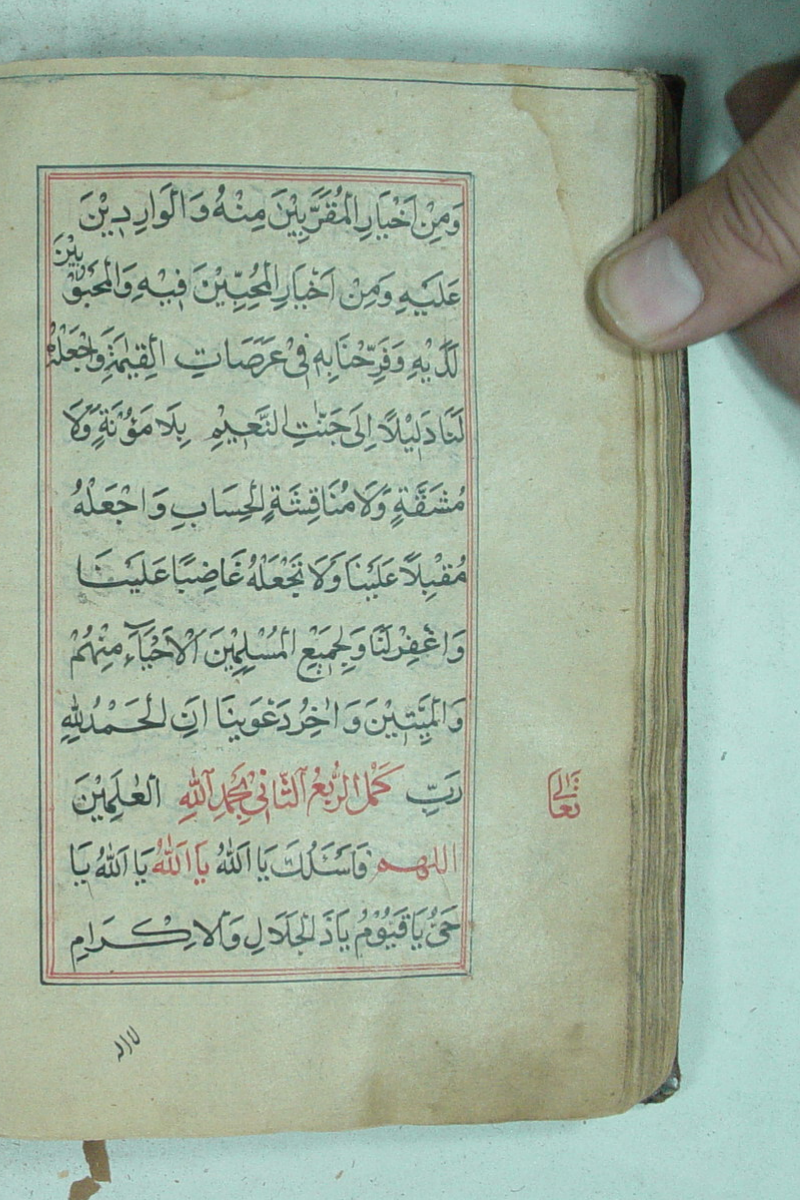 وَمِنْ اَخْيَارِ الْمُقَرَّبِيْنَ مِنْهُ وَالْوَارِدِيْنَ
عَلَيْهِ وَمِنْ اَخْيَارِ الْمُحِبِّيْنَ فِيْهِ وَالْمَحْبُوْبِيْنَ
لَدَيْهِ وَفَرِّحْنَا بِهٖ فِىْ عَرَصَاتِ الْقِيٰمَةِ وَاجْعَلْهُ
لَنَا دَلِيْلًا اِلٰى جَنّٰتِ النَّعِيْمِ بِلَا مَؤُنَةٍ وَّلَا
مُشَقَّةٍ وَّلَا مُنَاقِشَةِ الْحِسَابِ وَاجْعَلْهُ
مُقْبِلًا عَلَيْنَا وَلَا تَجْعَلْهُ غَاضِبًا عَلَيْنَا
وَاغْفِرْلَنَا وَلِجَمِيْعِ الْمُسْلِمِيْنَ الْاَحْيَآءِ مِنْهُمْ
وَالْمَيِّتِيْنَ وَاٰخِرُ دَعْوٰينَا اَنِ الْحَمْدُ لِلّٰهِ
رَبِّ كَمُلَ الرُّبْعُ الثَّانِىْ بِحَمْدِ اللّٰهِ الْعٰلَمِيْنَ
تَعَالٰى
اللهم فَاَسْئَلُكَ يَا اَللّٰهُ يَا اَللّٰهُ يَا اَللّٰهُ يَا
حَىُّ يَا قَيُّوْمُ يَا ذَ الْجَلَالِ وَالْاِكْرَامِ